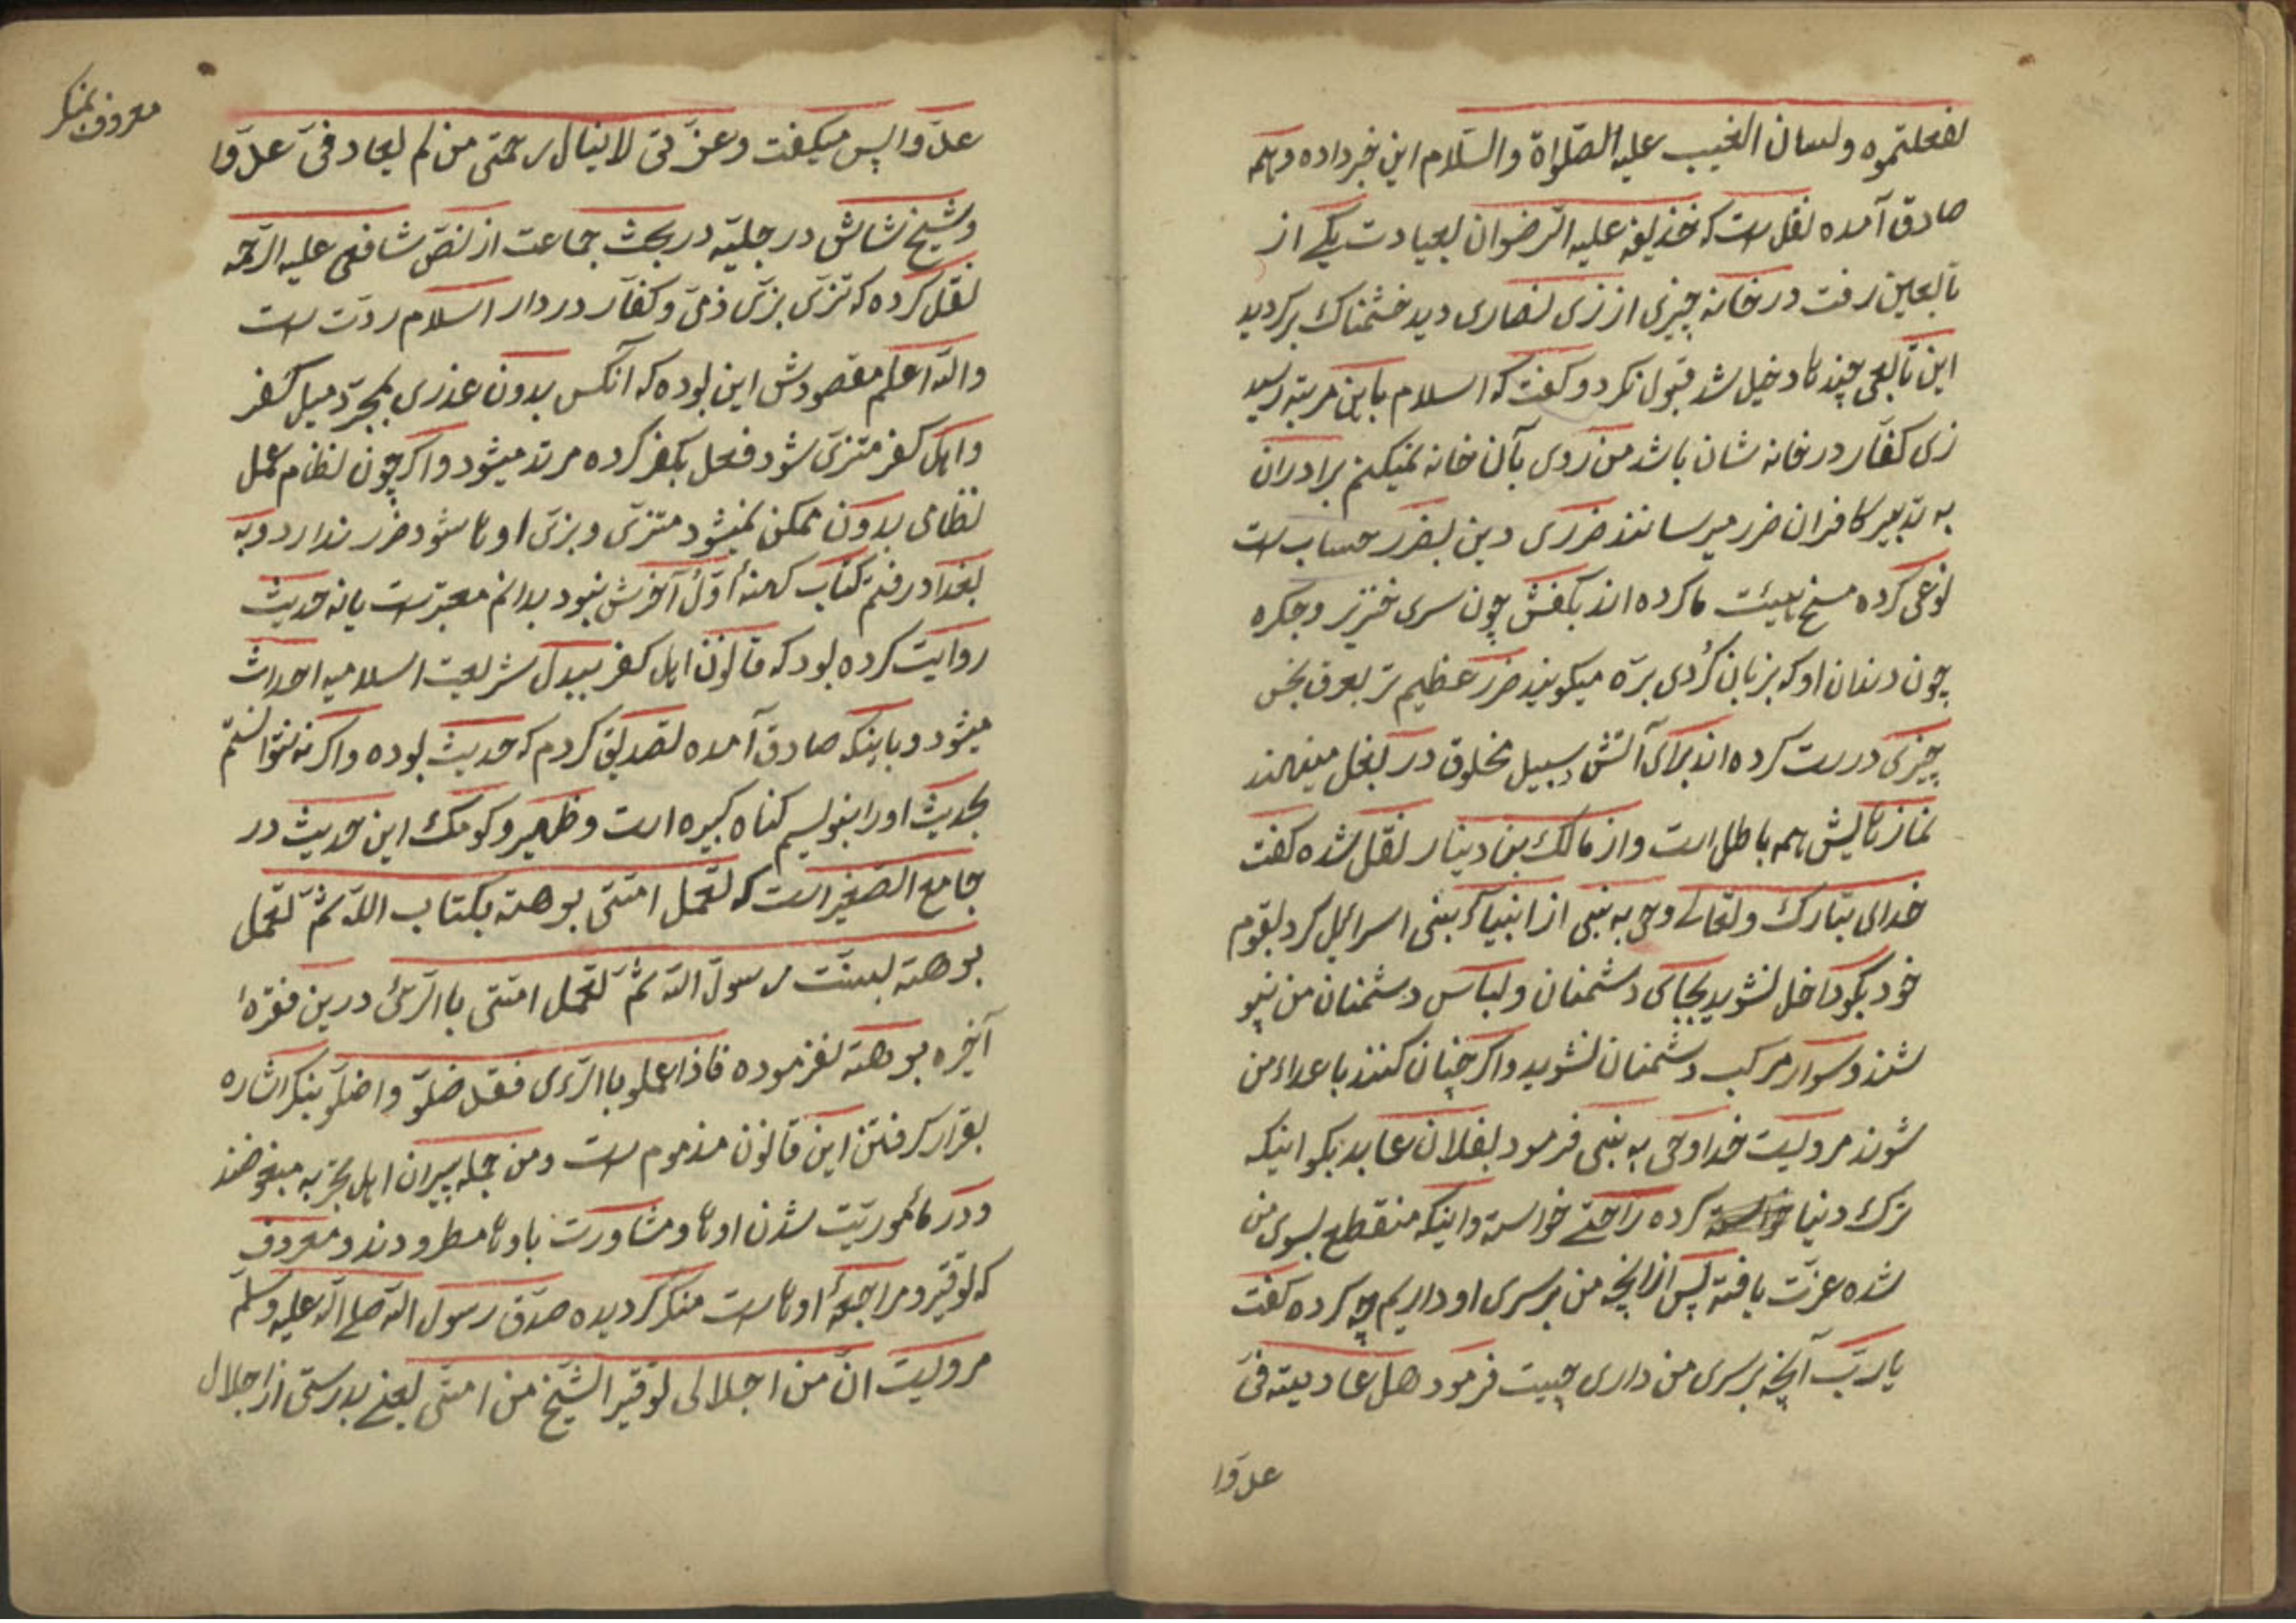 لفعلتموه ولسان الغیب علیه الصّلواة والسّلام این خبر داده وهمه
صادق آمده نقلست که حذیفه علیه الرّضوان بعیادت یکی از
تابعین رفت در خانه چیزی از زی نصاری دید خشمناک برگردید
این تابعی چند ها دخیل شد قبول نکرد و گفت که اسلام باین مرتبه رسید
زی کفّار در خانه شان باشد من روی بآن خانه نمیکنم برادران
به تدبیر کافران ضرر میرسانند ضرری دین بضرر حسابست
نوعی کرده مسخ هیئت ما کرده اند بکفش چون سری خنزیر و جکره
چون دندان او که بزبان کُردی برّه میگویند ضرر عظیم تر بعرف نجس
چیزی درست کرده اند برای آتش وسبیل مخلوق در بغل مینهند
نماز هایش همه باطل است و از مالک بن دینار نقل شده گفت
خدای تبارک وتعالی وحی به نبی از انبیآء بنی اسرائیل کرد بقوم
خود بگو داخل نشوید بجای دشمنان ولباس دشمنان من نپو
شند وسوار مرکب دشمنان نشوید واگر چنان کنند با عداء من
شوند مرویست خدا وحی به نبی فرمود بفلان عابد بگو اینکه
ترک دنیا کرده راحتی خواسته واینکه منقطع بسوی من
شده عزّت یافته پس از آنچه من بر سری او داریم چه کرده گفت
یا ربّ آنچه بر سری من داری چیست فرمود هل عادیته فیّ
عدوّا
عدوّا پس میگفت وعزّتی لا ینال رحمتی من لم یعاد فیّ عدوّا
وشیخ شاشی در حلیّه در بحث جماعت از نصّ شافعی علیه الرّحمه
نقل کرده که تزیّ بزیّ ذمیّ و کفّار در دار اسلام ردّت است
والله اعلم مقصودش این بوده که آنکس بدون عذری بمجرّد میل کفر
واهل کفر متزیّ شود فعل بکفر کرده مرتد میشود واگر چون نظام عمل
نظامی بدون ممکن نمیشود متزیّ وبزیّ اوها شود ضرر ندارد وبه
بغداد رفتم کتاب کهنهٔ اوّل آخرش نبود بدانم معتبرست یا نه حدیث
روایت کرده بود که قانون اهل کفر ببدل شریعت اسلامیه احداث
میشود وباینکه صادق آمده تصدیق کردم که حدیث بوده واگرنه نتوانستم
بحدیث اورا بنویسم کناه کبیره است وظهیر وکومک این حدیث در
جامع الصّغیر است که تعمل امّتی بوهته بکتاب الله ثمّ تعمل
بوهته بسنّت رسول الله ثمّ تعمل امّتی با الرّئ درین فقرهٔ
آخره بوهته نفرموده فاذا عملو با الرّءی فقد ضلّو واضلّو بنکر اشاره
بقرار گرفتن این قانون مذموم است ومن جمله پیران اهل تجربه مبغوضند
ودر مأموریّت شدن اوها ومشاورت باوها مطرودند ومعروف
که توقیر ومراجعهٔ اوهاست منکر گردیده صدق رسول الله صلی الله علیه وسلّم
مرویست انّ من اجلالی توقیر الشّیخ من امتّی یعنی بدرستی از اجلال
معروف بمنکر